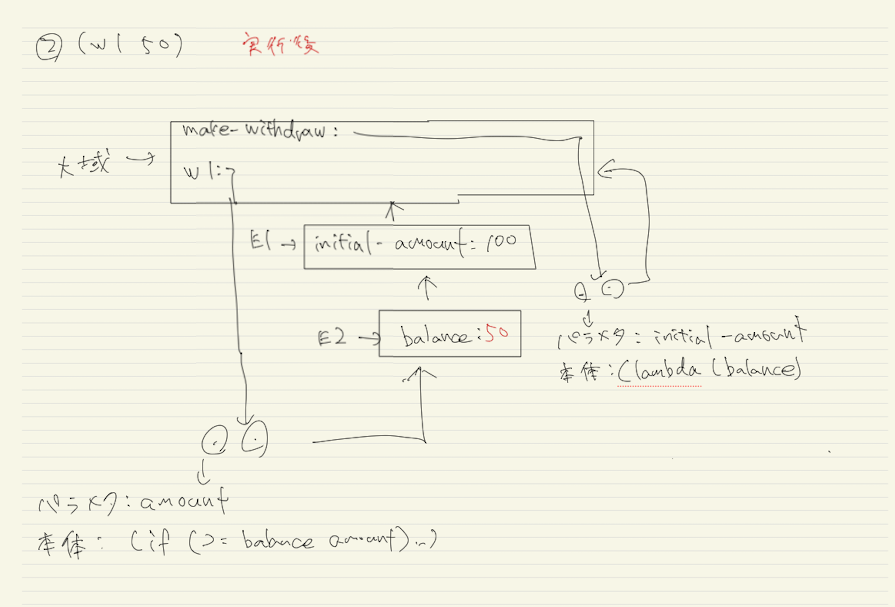 ② (W1 50) 実行後
make-withdraw:
大域 →
W1:
E1 → initial-amount: 100
E2 → balance: 50
パラメタ: initial-amount
本体: (lambda (balance)
パラメタ: amount
本体: (if (>= balance amount)..)